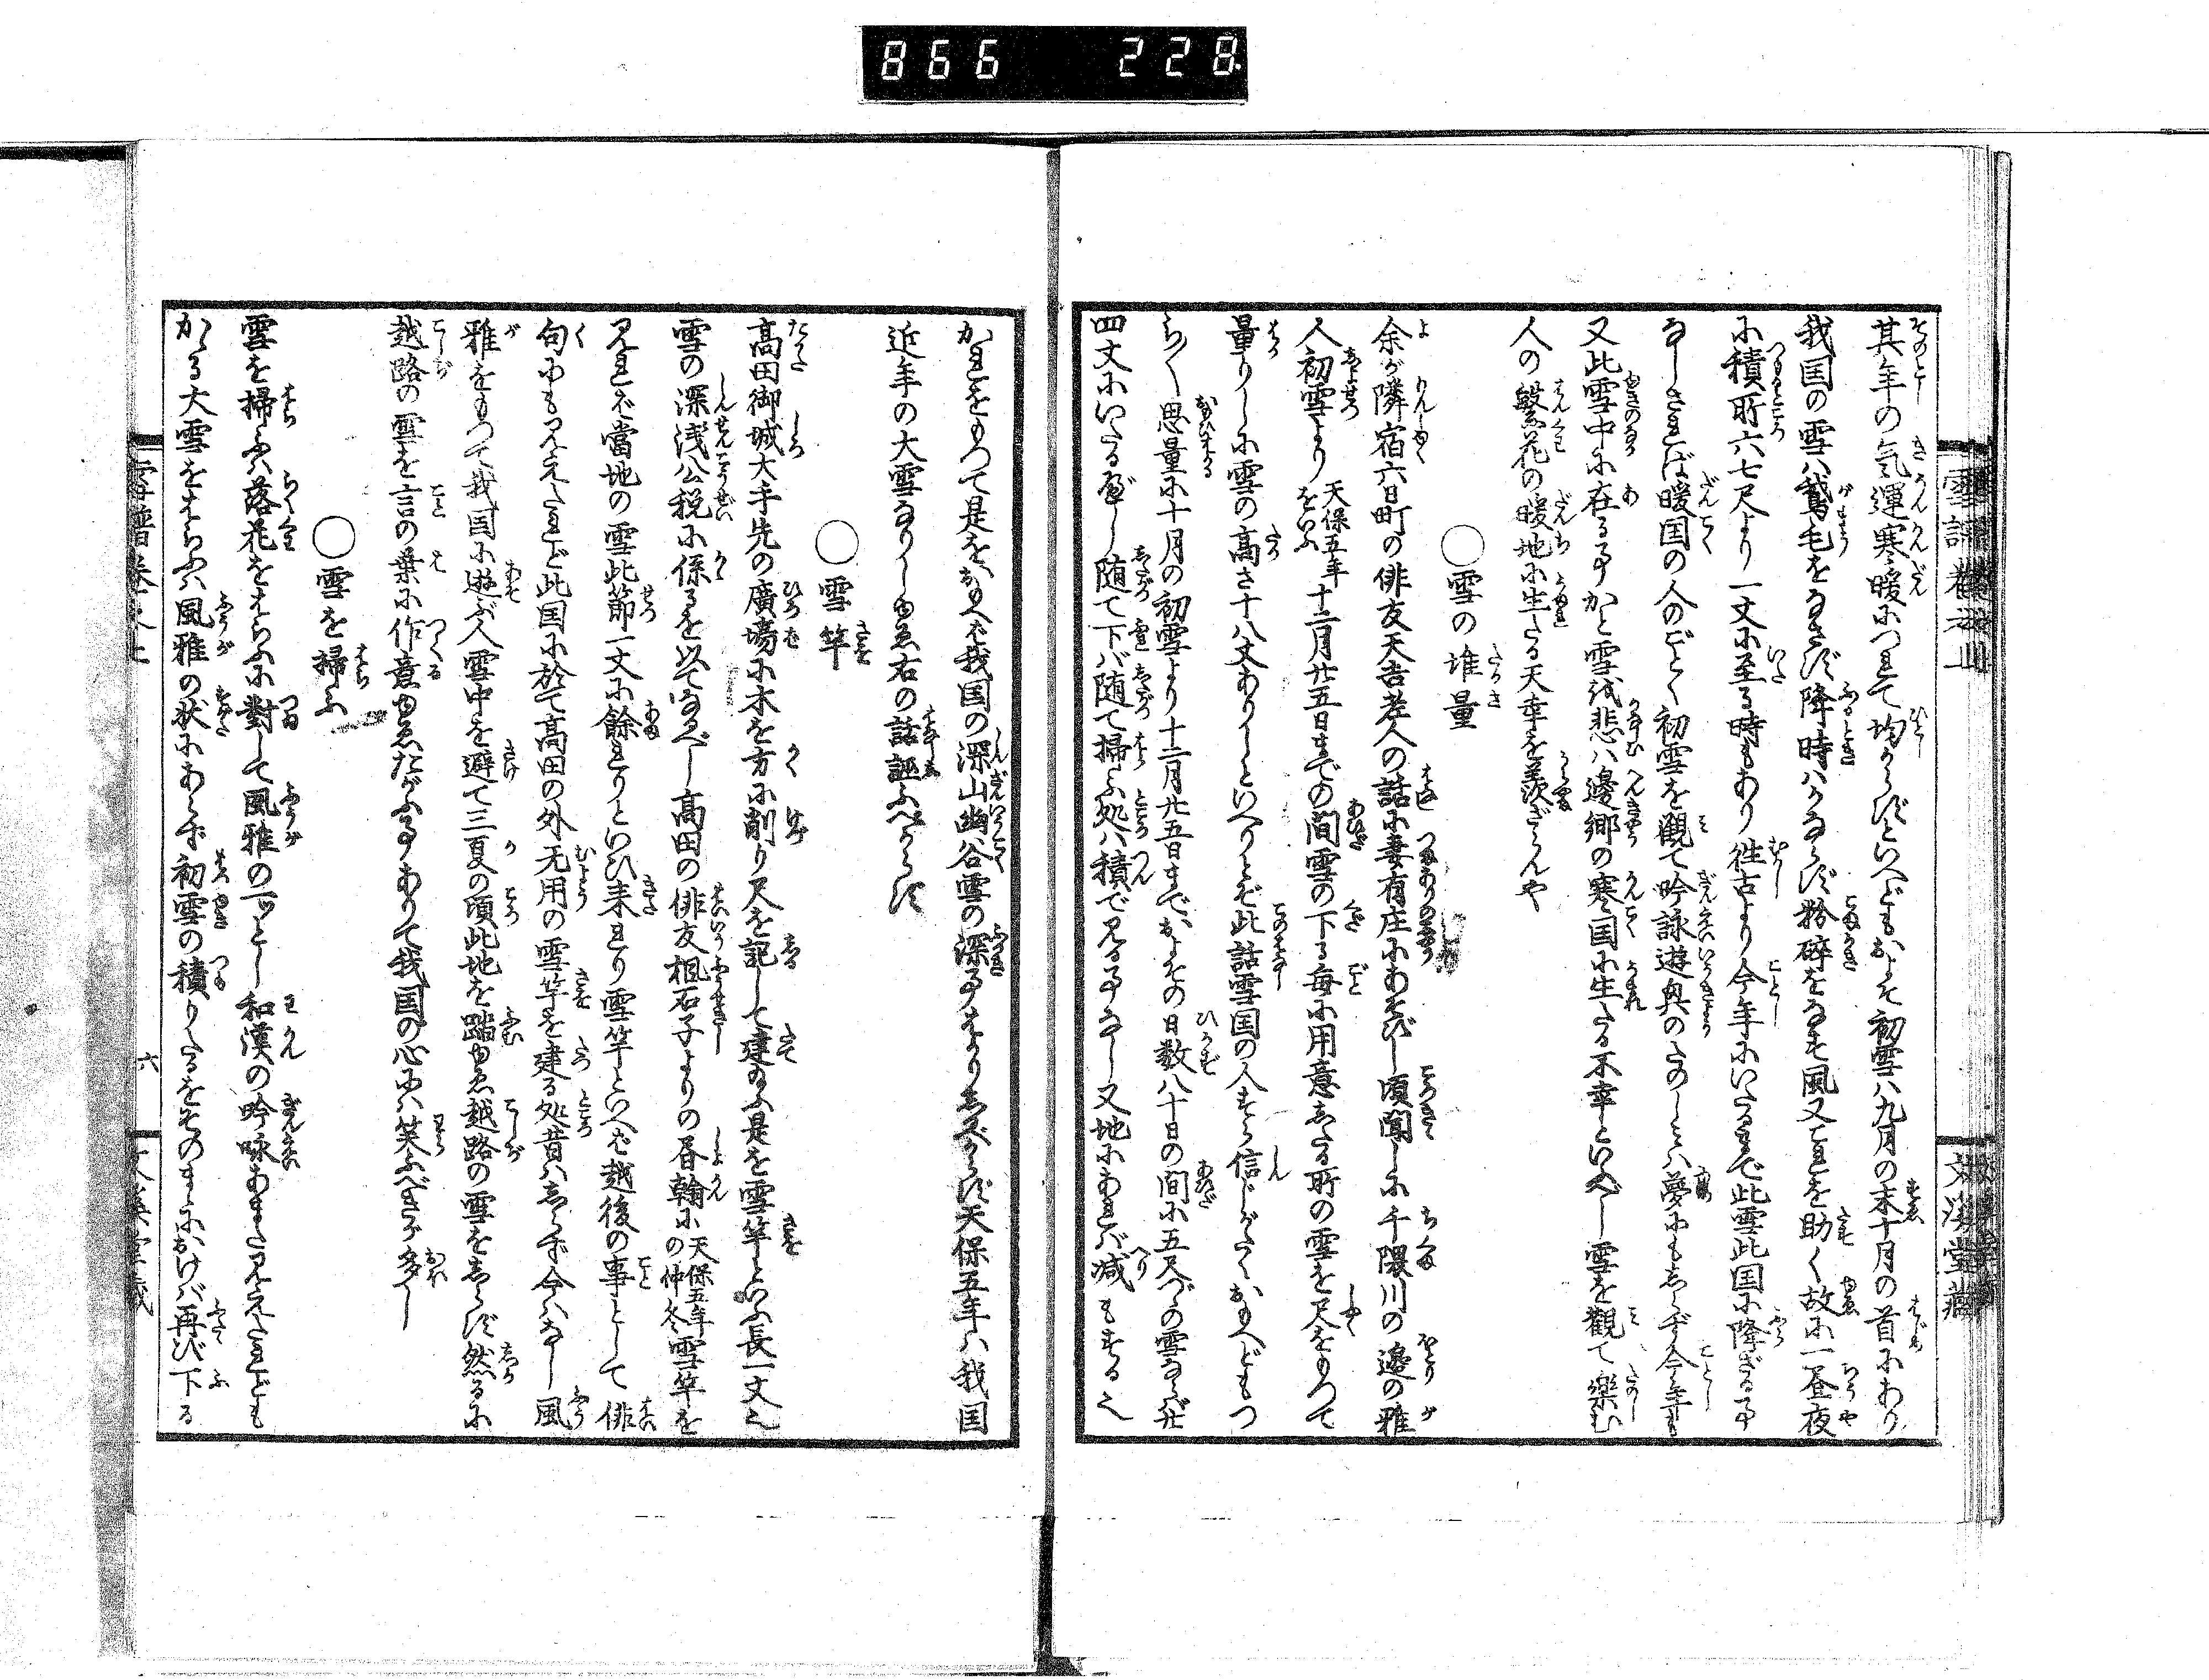 866 228
其年の気運寒暖につれて均からずといへどもおよそ初雪ハ九月の末十月の首にあり
我国の雪ハ鵞毛をなさず降時ハかならず粉砕をなす風又これを助く故に一昼夜
に積所六七尺より一丈に至る時もあり往古より今年にいたるまで此雪此国に降ざる事
なしされば暖国の人のごとく初雪を観て吟詠遊興のたのしミハ夢にもしらず今年も
又此雪中に在る事かと雪を悲ハ邊郷の寒国に生たる不幸といふべし雪を観て楽む
人の繁花の暖地に生たる天幸を羨ざらんや
○雪の堆量
余が隣宿六日町の俳友天吉老人の話に妻有庄にあそびし頃聞しに千隈川の邊の雅
人初雪より天保五年をいふ十二月廿五日までの間雪の下る毎に用意したる所の雪を尺をもつて
量りしに雪の高さ十八丈ありしといへりとぞ此話雪国の人すら信じがたくおもへどもつ
ら〱思量に十月の初雪より十二月廿五日までおよその日数八十日の間に五尺づゝの雪ならバ廿
四丈にいたるべし随て下バ随て掃ふ処ハ積で見る事なし又地にあれバ減もする也
かれをもつて是をおもへバ我国の深山幽谷雪の深事はかりしるべからず天保五年ハ我国
近年の大雪なりしゆゑ右の話誣ふべからず
○雪竿
高田御城大手先の廣場に木を方に削り尺を記して建給ふ是を雪竿といふ長一丈也
雪の深浅公税に係るを以てなるべし高田の俳友楓石子よりの書翰に天保五年の仲冬雪竿を
見れバ當地の雪此節一丈に餘れりといひ来れり雪竿といへバ越後の事として俳
句にも見えたれど此国に於て高田の外无用の雪竿を建る処昔ハしらず今ハなし風
雅をもつて我国に遊ぶ人雪中を避て三夏の頃此地を踏ゆゑ越路の雪をしらず然るに
越路の雪を言の葉に作意ゆゑたがふ事ありて我国の心にハ笑ふべきが多し
○雪を掃ふ
雪を掃ふハ落花をはらふに對して風雅の一ツとし和漢の吟咏あまた見えたれども
かゝる大雪をはらふハ風雅の状にあらず初雪の積りたるをそのまゝにおけバ再び下る
六